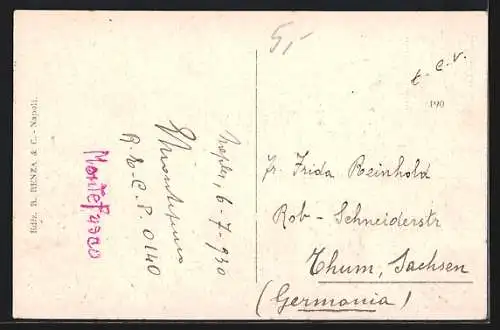 5,-
t. c. v.
190
Fr. Frida Reinhold
Rob - Schneiderstr
Thum, Sachsen
(Germania)
Naples, 6-7-930
Montefusco
R. L. C. P. 0140
Montefusco
Ediz. R. RENZA & C. - Napoli.